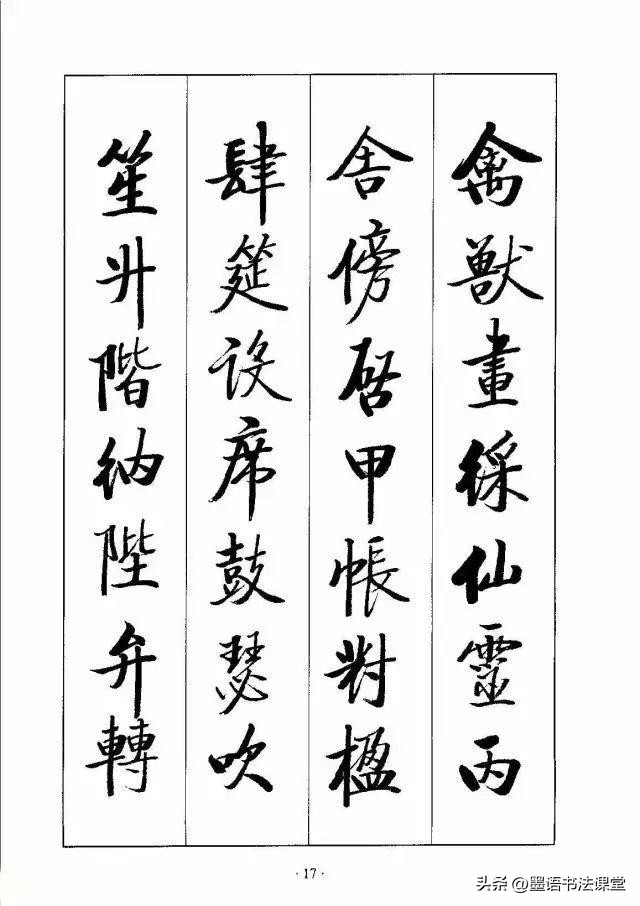 禽獸畫綵仙靈丙
舍傍啓甲帳對楹
肆筵设席鼓瑟吹
笙升階納陛弁轉
·17·
头条@墨语书法课堂